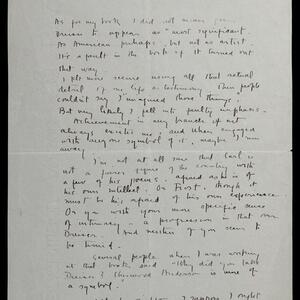 As for my book, I did not mean
Dreiser to appear as most significant.
As American perhaps, but not as artist.
It's a fault in the book if it turned out
that way.
I felt more secure using all that actual
detail of my life as testimony. Then people
couldn't say I imagined those things.
But very likely I fell into faulty emphasis.
Achievement in any branch of art
always excites me and when engaged
with any one symbol of it, maybe I run
away.
I'm not at all sure that Earl is
not a power figure of the country with
a few of his poems - afraid as he is of
his own intellect. Or Frost, though it
must be his afraid of his own experience.
Or you with your more specific sense
of intimacy - a progression in that over
Dreiser. And neither of you seem to
be timid.
Several people when I was working
at that book said - Why did you take
Dreiser? Sherwood Anderson is more of
a symbol.